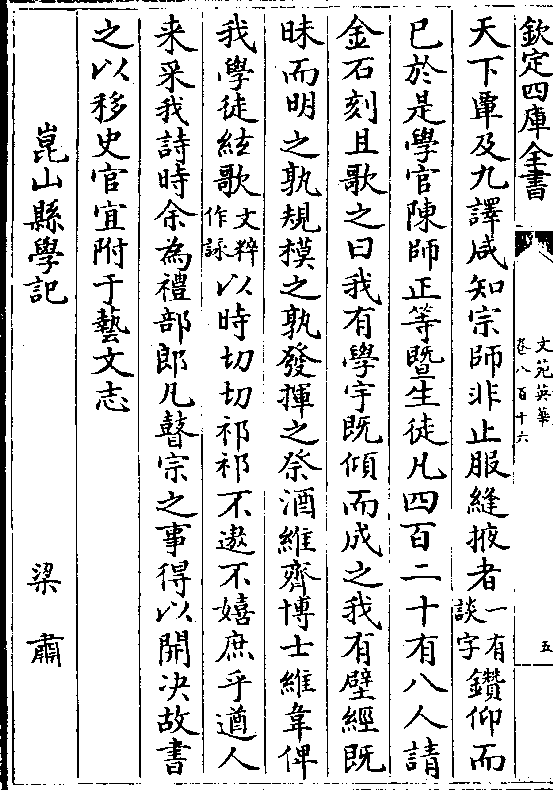 欽定四庫全書
文苑英華
卷八百十六
五
天下覃及九譯咸知宗師非止服縫掖者一有談字鑽仰而
已於是學官陳師正等暨生徒凡四百二十有八人請
金石刻且歌之曰我有學宇既傾而成之我有壁經既
昧而明之孰規模之孰發揮之祭酒維齊博士維韋俾
我學徒絃歌文粹作詠以時切切祁祁不遨不嬉庶乎遒人
来采我詩時余為禮部郎凡瞽宗之事得以開决故書
之以移史官宜附于藝文志
崑山縣學記　梁肅